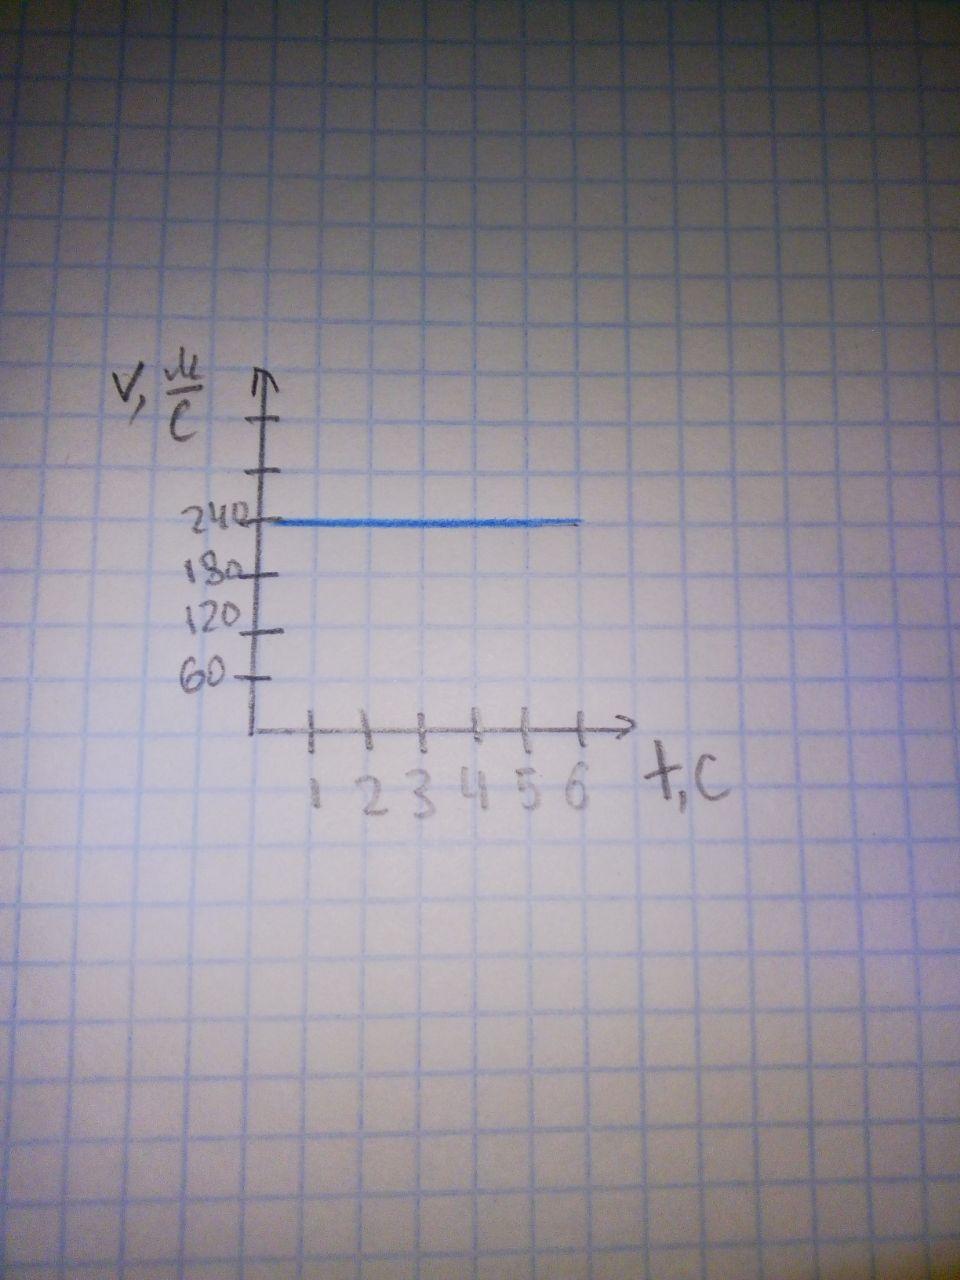 v, м/с
240
180
120
60
1 2 3 4 5 6
t, с